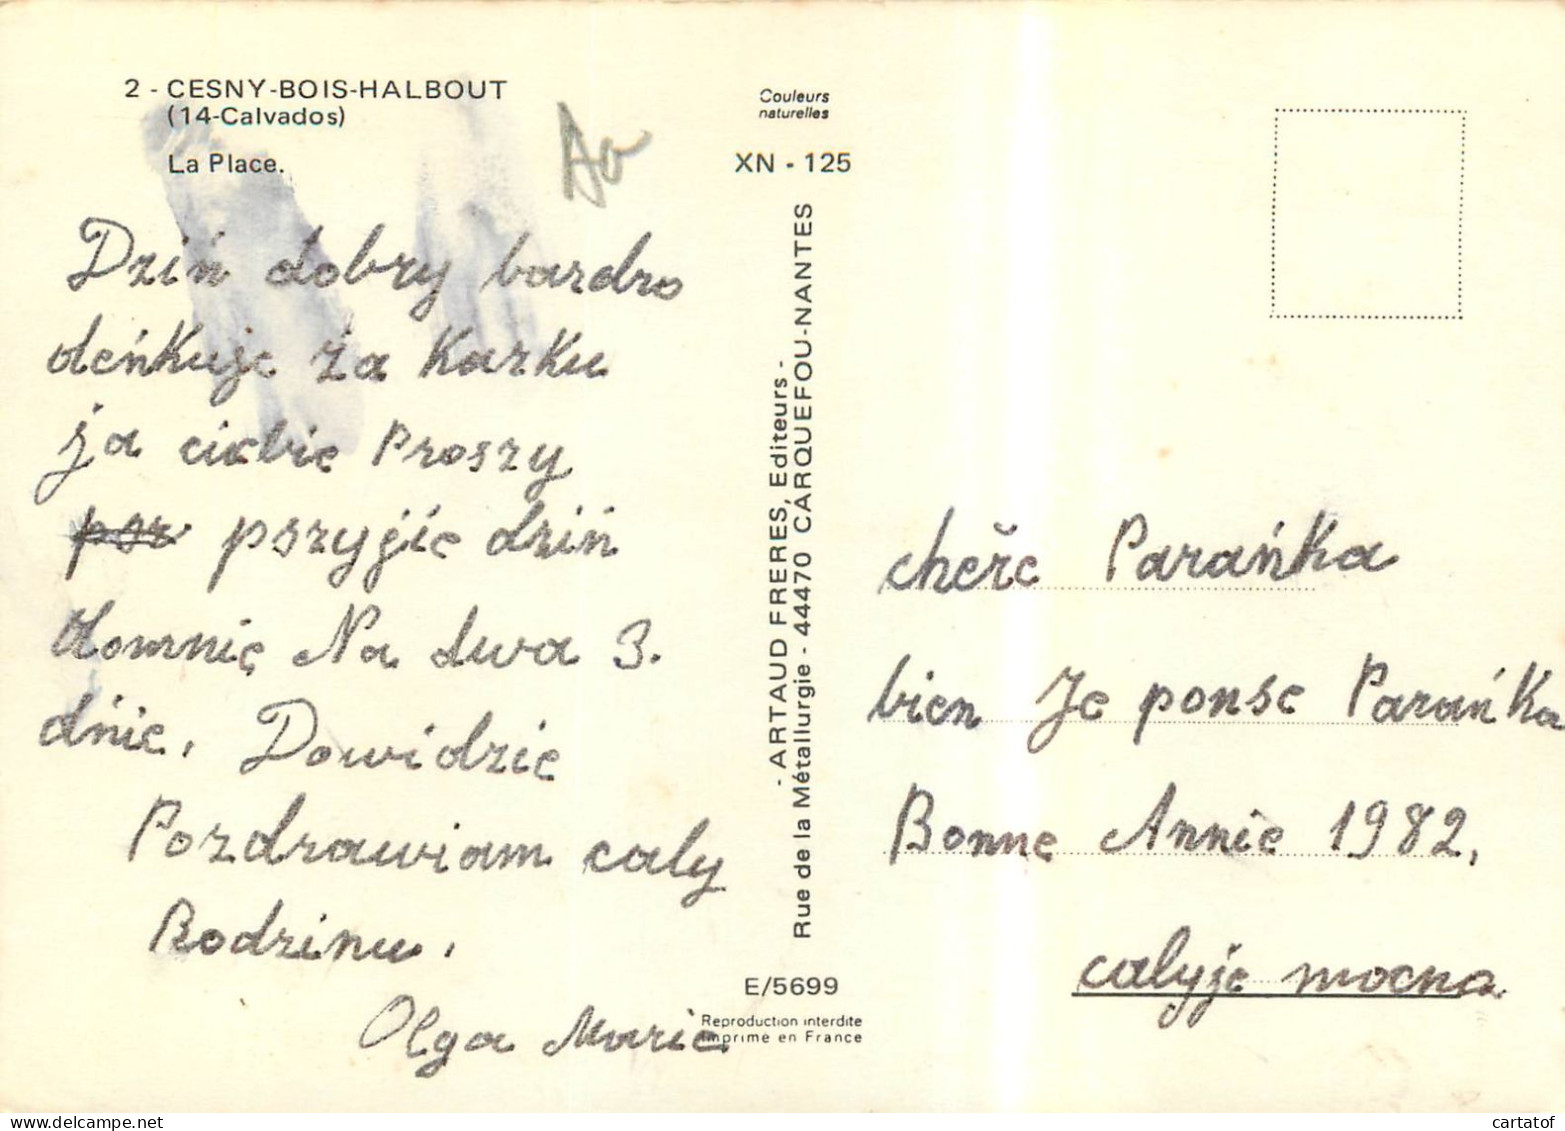 2 - CESNY-BOIS-HALBOUT
(14-Calvados)
La Place.
Dziń dobry bardzo
deńkuje za Karku
ja ciebie Proszy
psz pszyjíc dziń
domnię Na dwa 3.
dnie. Dowidzie
Pozdrawiam caly
Rodzinu.
Olga Marie
Couleurs
naturelles
XN - 125
- ARTAUD FRERES, Editeurs -
Rue de la Métallurgie - 44470 CARQUEFOU-NANTES
E/5699
Reproduction interdite
Imprimé en France
cheře Parańka
bien Je ponse Parańka
Bonne Annie 1982,
calyje mocna
cartatof